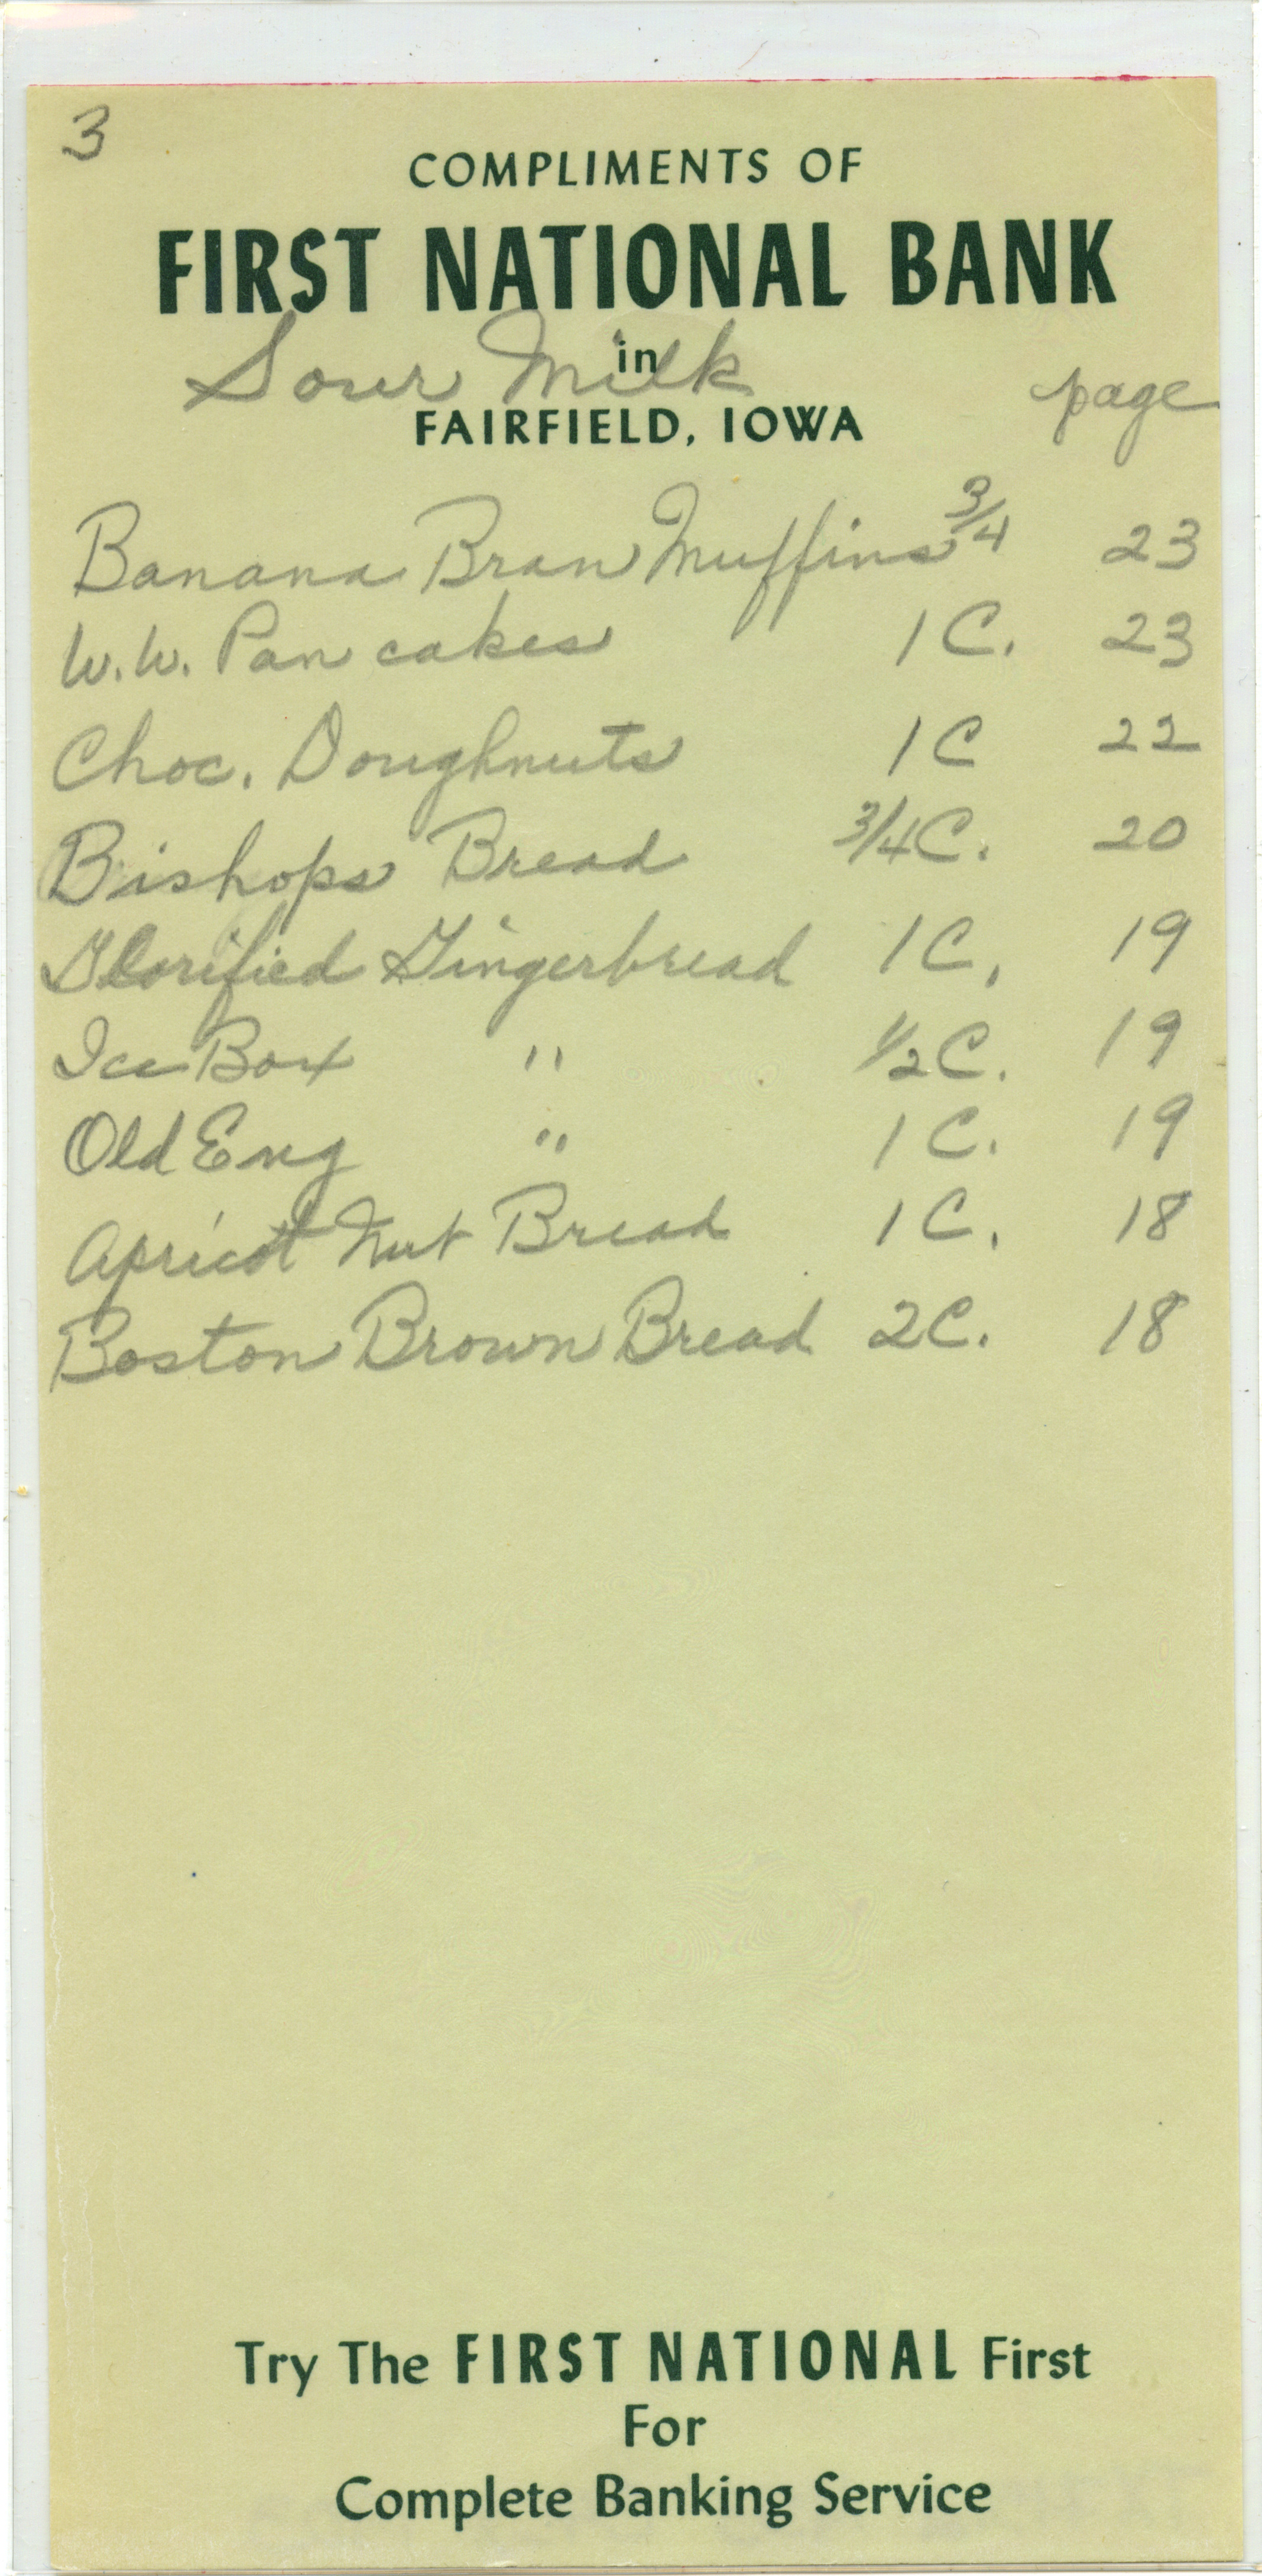 3
COMPLIMENTS OF
FIRST NATIONAL BANK
in
Sour Milk
page
FAIRFIELD, IOWA
Banana Bran Muffins 3/4 23
W.W. Pancakes 1 C. 23
Choc. Doughnuts 1 C 22
Bishops Bread 3/4 C. 20
Glorified Gingerbread 1 C. 19
Ice Box " 1/2 C. 19
Old Eng " 1 C. 19
Apricot Nut Bread 1 C. 18
Boston Brown Bread 2 C. 18
Try The FIRST NATIONAL First
For
Complete Banking Service